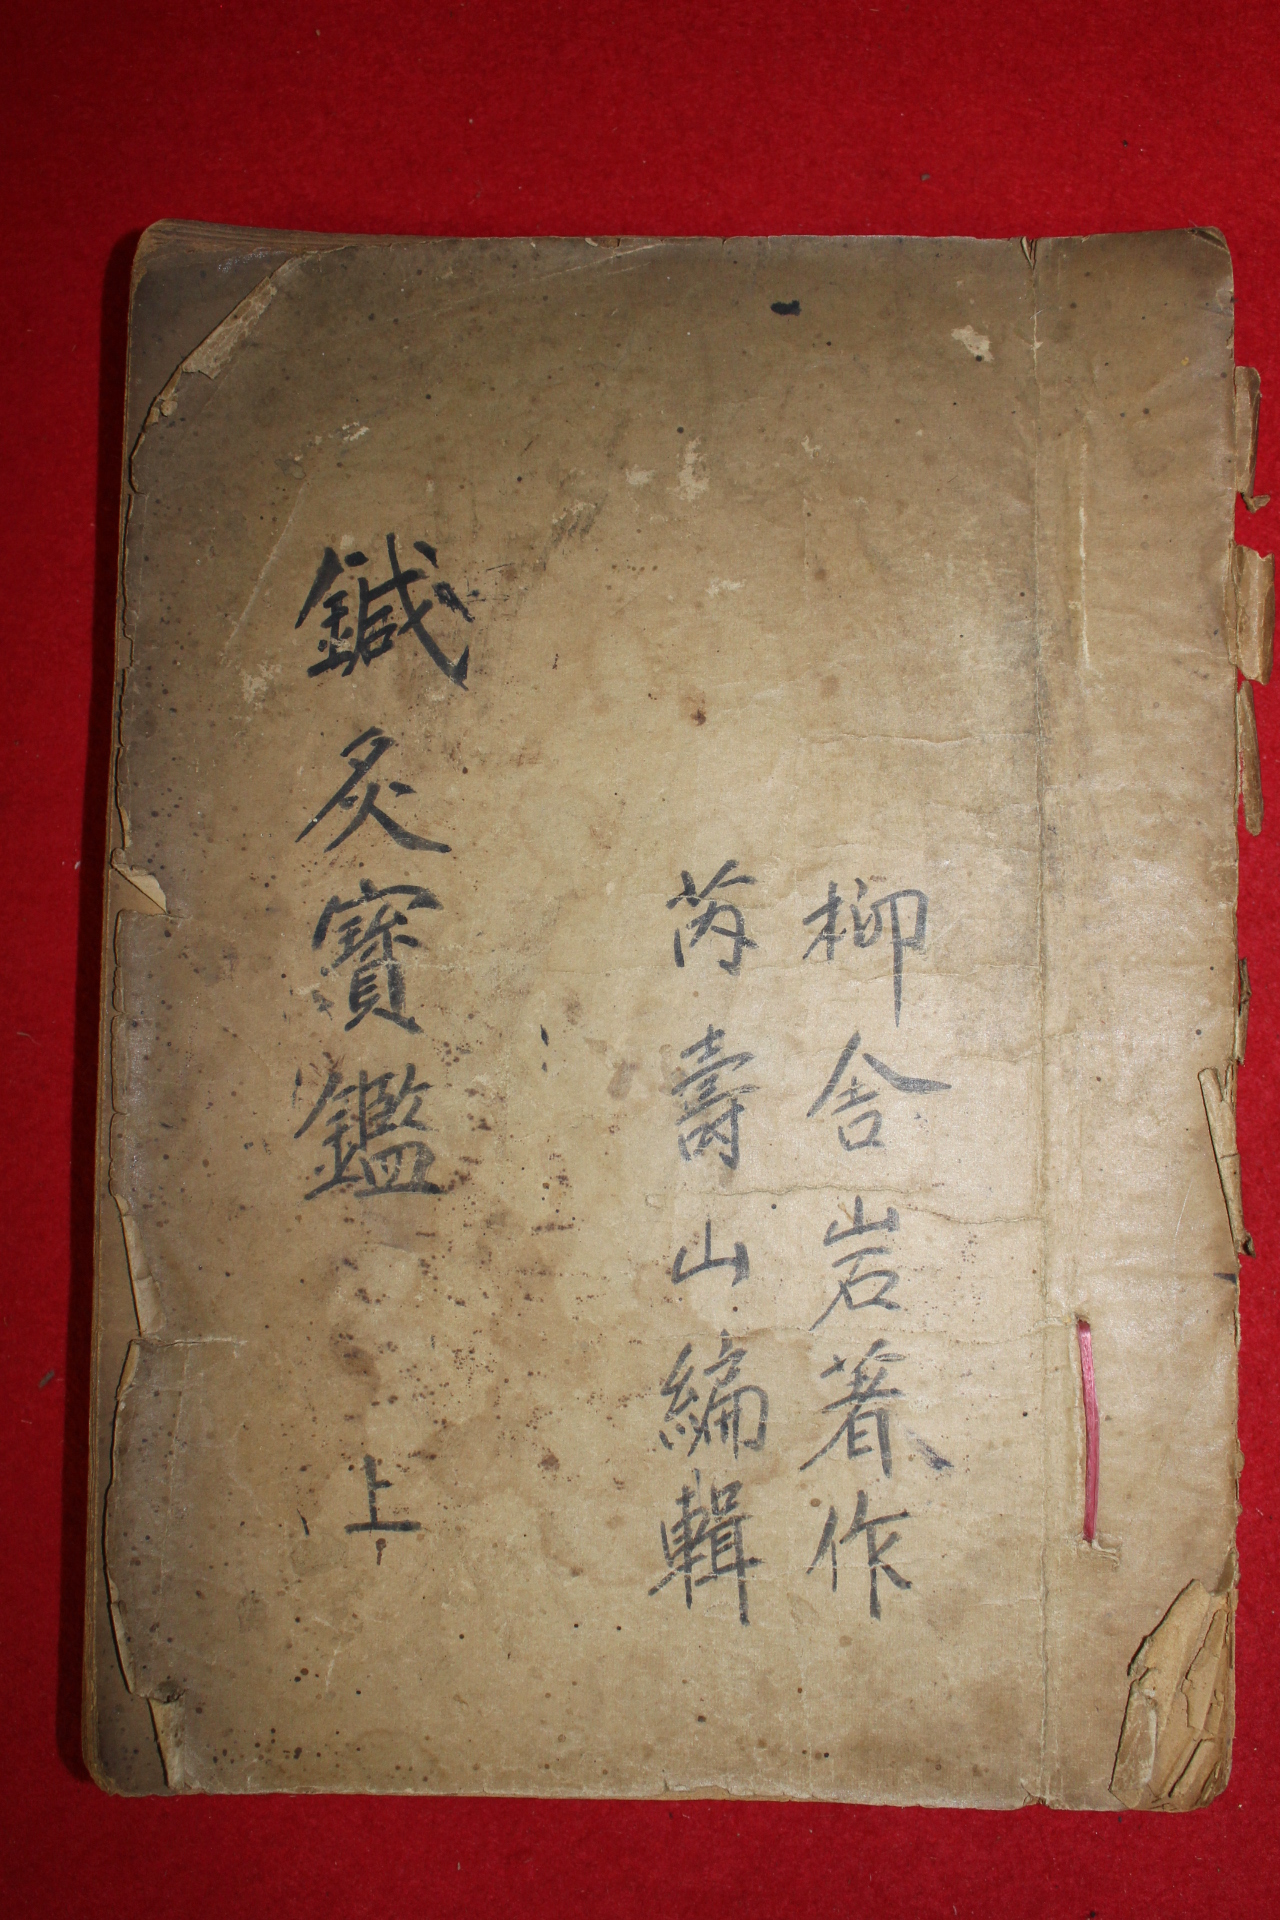 柳舍岩著作
芮壽山編輯
鍼灸寶鑑 上